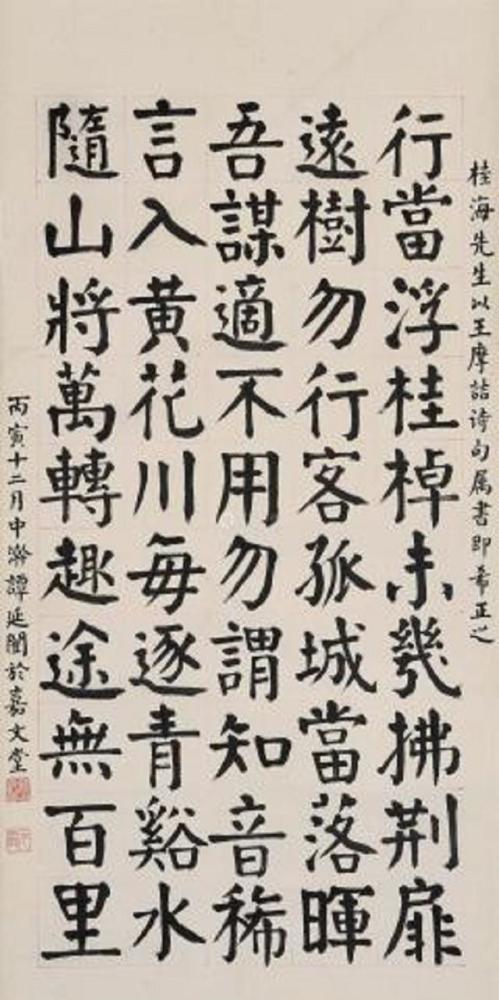 桂海先生以王摩詰诗句属書即希正之
行當浮桂棹未幾拂荆扉
遠樹勿行客孤城當落暉
吾謀適不用勿謂知音稀
言入黃花川每逐青谿水
隨山將萬轉趣途無百里
丙寅十二月中澣譚延闓於嘉文堂